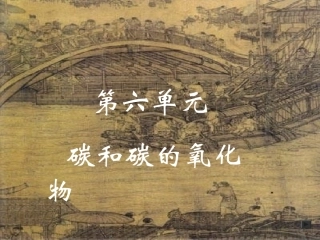 第六单元
碳和碳的氧化
物